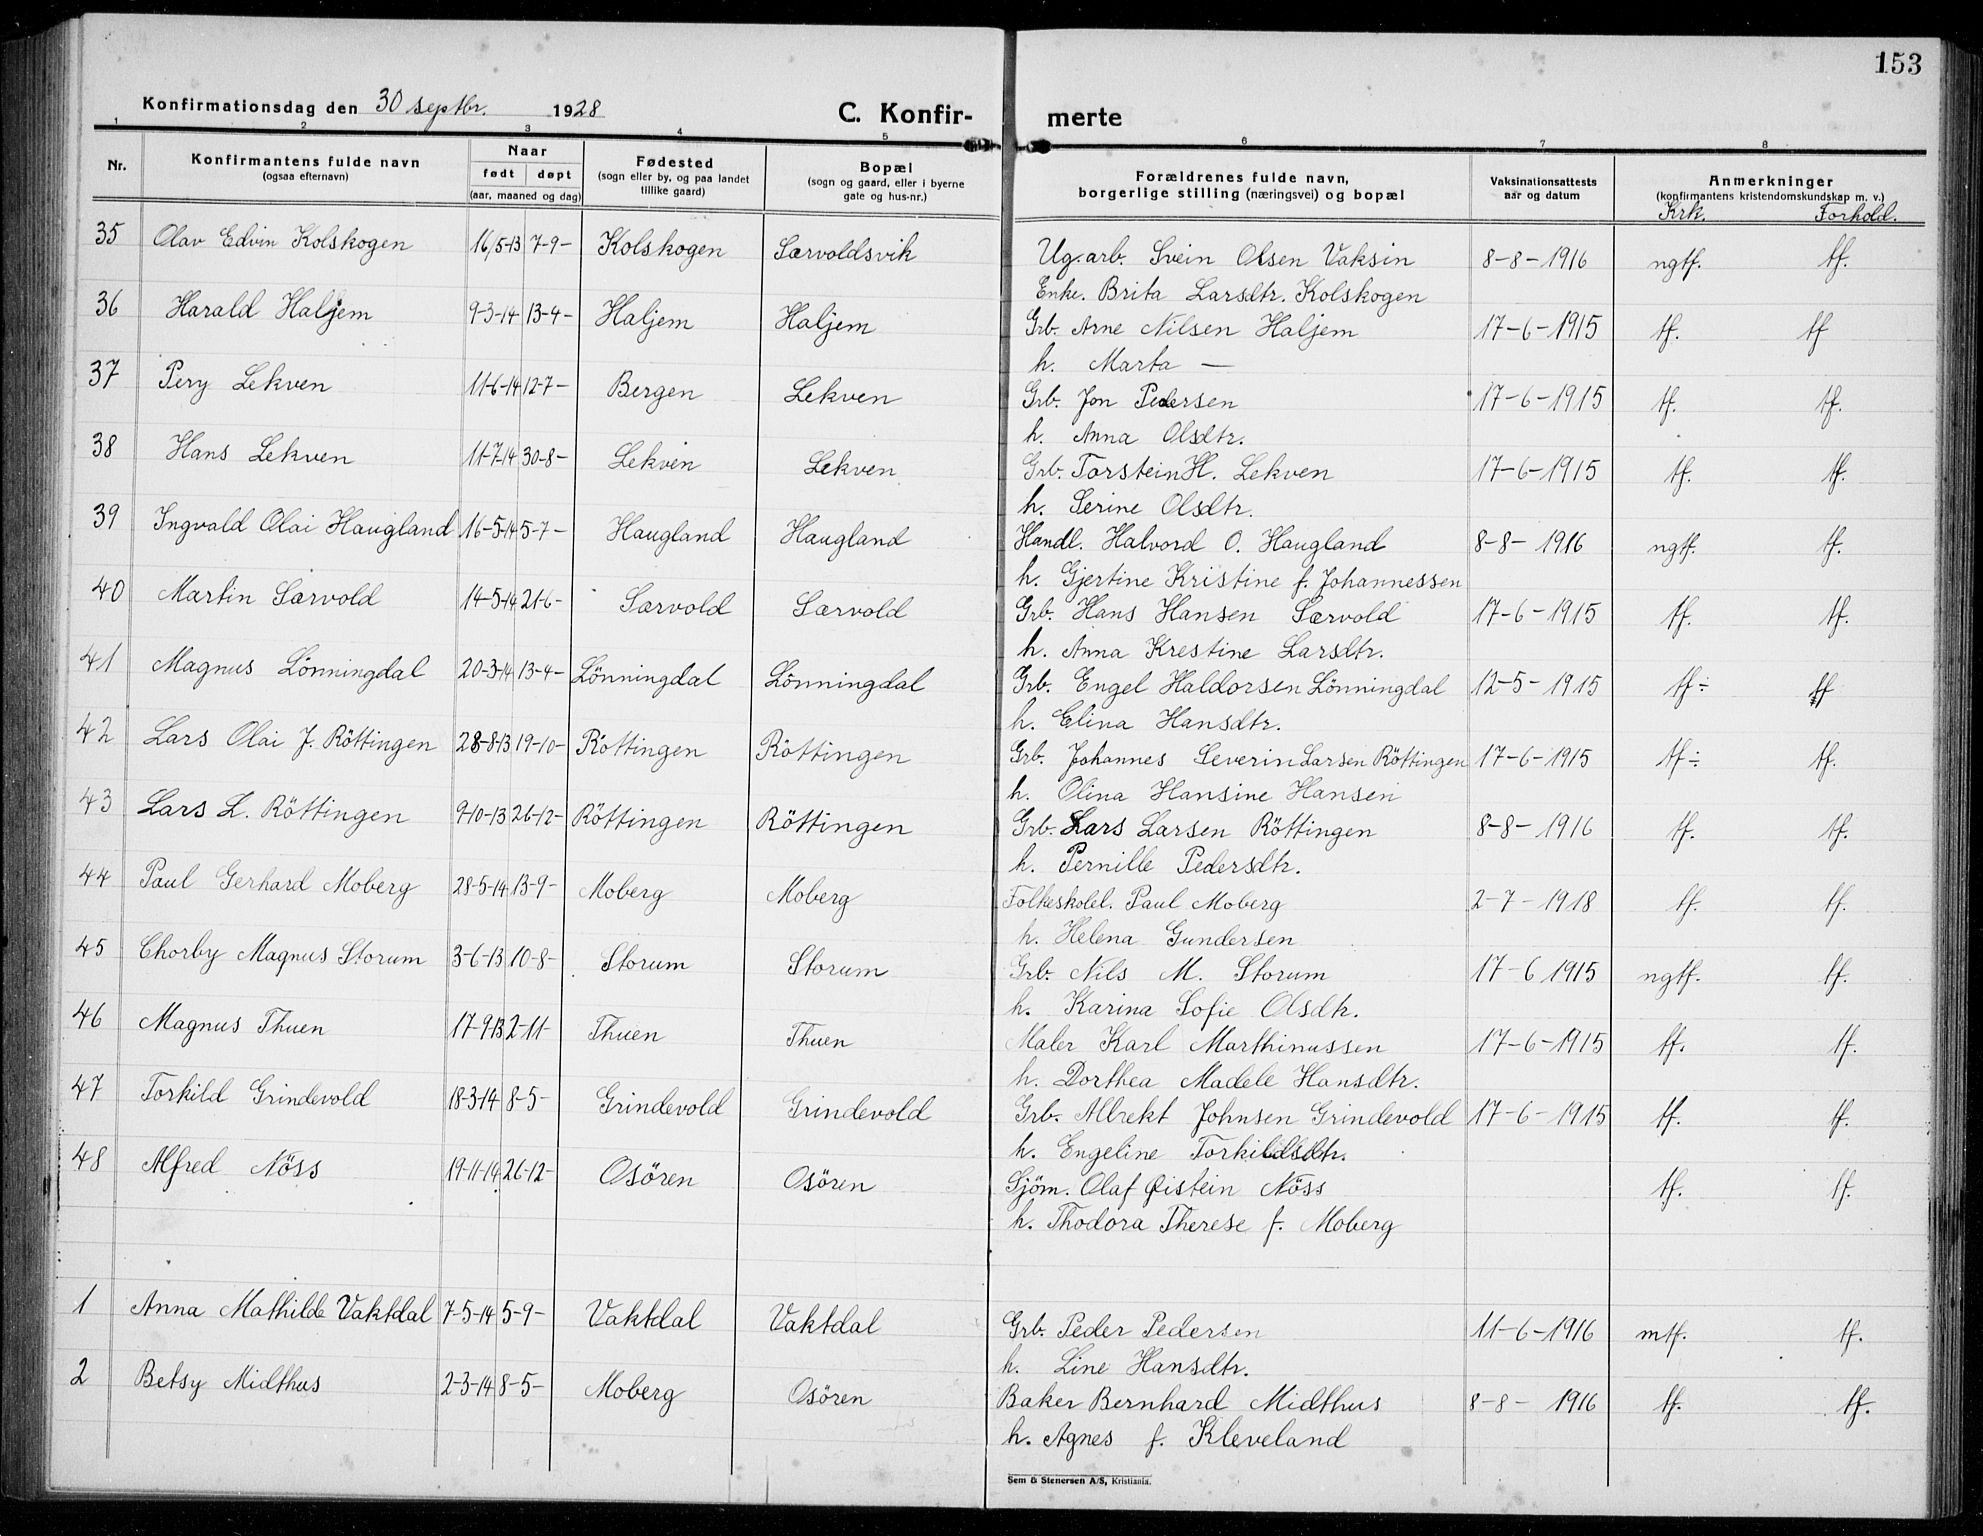 153
Konfirmationsdag den 30 septbr. 1928
C. Konfirmerte
1 2 3 4 5 6 7 8
Nr.
Konfirmantens fulde navn
(ogsaa efternavn)
Naar
født døpt
(aar, maaned og dag)
Fødested
(sogn eller by, og paa landet
tillike gaard)
Bopæl
(sogn og gaard, eller i byerne
gate og hus-nr.)
Forældrenes fulde navn,
borgerlige stilling (næringsvei) og bopæl
Vaksinationsattests
aar og datum
Anmerkninger
(konfirmantens kristendomskundskap m. v.)
Krk. Forhold.
35 Olav Edvin Kolskogen 16/5-13 7-9- Kolskogen Særvoldsvik Ug.arb. Svein Olsen Vaksin 8-8-1916 ngtf. tf.
Enke. Brita Larsdtr. Kolskogen
36 Harald Haljem 9-3-14 13-4- Haljem Haljem Grb. Arne Nilsen Haljem 17-6-1915 tf. tf
h. Marta —
37 Pery Lekven 11-6-14 12-7- Bergen Lekven Grb. Jon Pedersen 17-6-1915 tf. tf.
h. Anna Olsdtr.
38 Hans Lekven 11-7-14 30-8- Lekven Lekven Grb. Torstein H. Lekven 17-6-1915 tf. tf.
h. Serine Olsdtr.
39 Ingvald Olai Haugland 16-5-14 5-7- Haugland Haugland Handl. Halvord O. Haugland 8-8-1916 ngtf. tf.
h. Gjertine Kristine f. Johannessen
40 Martin Særvold 14-5-14 21-6- Særvold Særvold Grb. Hans Hansen Særvold 17-6-1915 tf. tf.
h. Anna Krestine Larsdtr.
41 Magnus Lönningdal 20-3-14 13-4- Lönningdal Lönningdal Grb. Engel Haldorsen Lönningdal 12-5-1915 tf÷ tf
h. Elina Hansdtr.
42 Lars Olai J. Röttingen 28-8-13 19-10- Röttingen Röttingen Grb. Johannes Severin Larsen Röttingen 17-6-1915 tf÷ tf.
h. Olina Hansine Hansen
43 Lars L. Röttingen 9-10-13 26-12- Röttingen Röttingen Grb. Lars Larsen Röttingen 8-8-1916 tf. tf.
h. Pernille Pedersdtr.
44 Paul Gerhard Moberg 28-5-14 13-9- Moberg Moberg Folkeskolel. Paul Moberg 2-7-1918 tf. tf.
h. Helena Gundersen
45 Chorby Magnus Storum 3-6-13 10-8- Storum Storum Grb. Nils M. Storum 17-6 1915 ngtf. tf.
h. Karina Sofie Olsdtr.
46 Magnus Thuen 17-9-13 2-11- Thuen Thuen Maler Karl Marthinussen 17-6-1915 tf. tf.
h. Dorthea Madele Hansdtr.
47 Torkild Grindevold 18-3-14 8-5- Grindevold Grindevold Grb. Albrekt Johnsen Grindevold 17-6-1915 tf. tf.
h. Engeline Torkildsdtr.
48 Alfred Nöss 19-11-14 26-12- Osören Osören Sjöm. Olaf Øistein Nöss tf. tf.
h. Thodora Therese f. Moberg
1 Anna Mathilde Vaktdal 7-5-14 5-9- Vaktdal Vaktdal Grb. Peder Pedersen 11-6-1916 mtf. tf.
h. Line Hansdtr.
2 Betsy Midthus 2-3-14 8-5- Moberg Osören Baker Bernhard Midthus 8-8-1916 tf. tf.
h. Agnes f. Kleveland
Sem & Stenersen A/S, Kristiania.